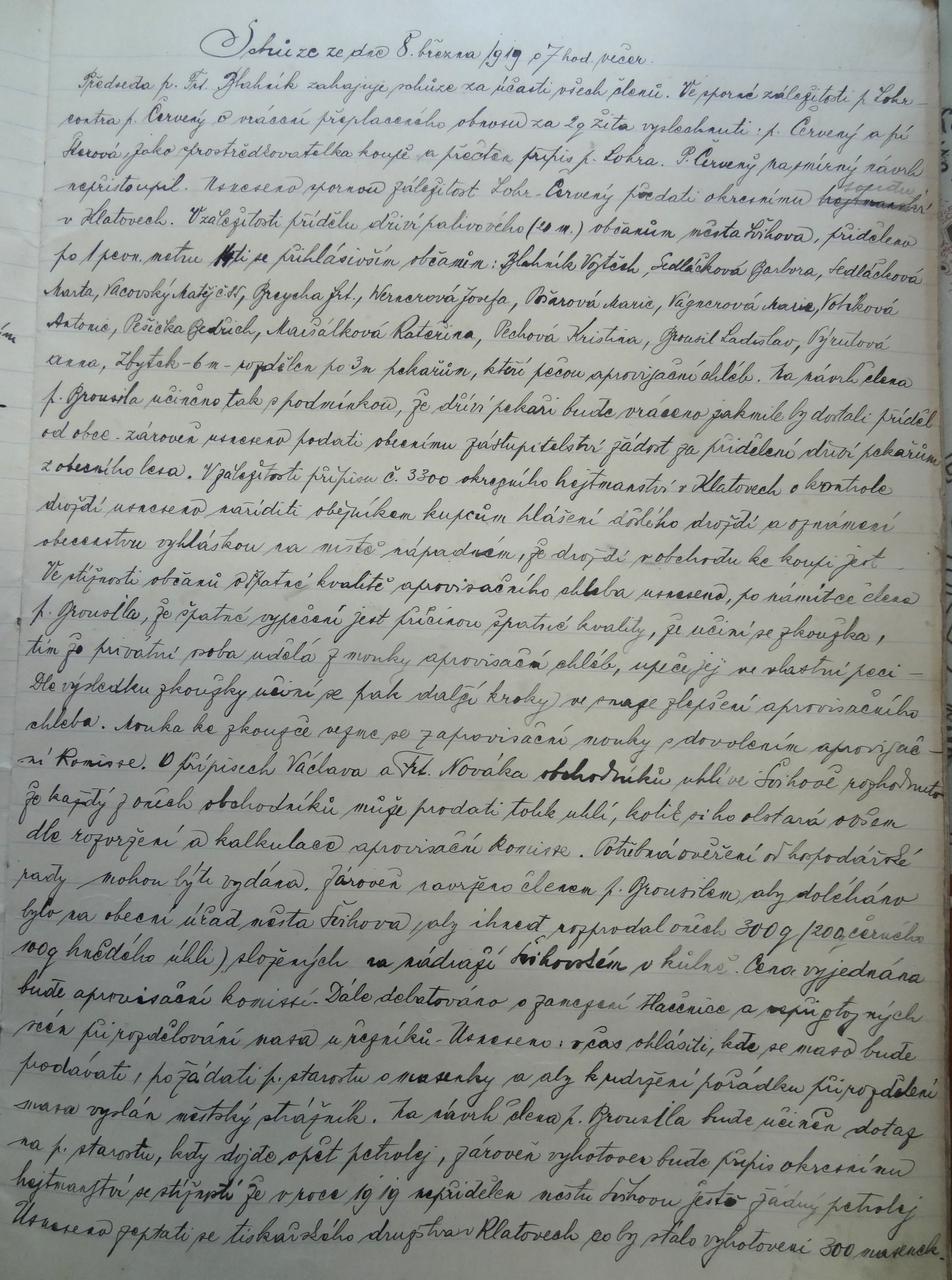 Schůze ze dne 8. března 1919 o 7 hod. večer.
Předseda p. Frt. Blahník zahajuje schůze za účasti všech členů. Ve sporné záležitosti p. Lohr
contra p. Červený o vrácení přeplaceného obnosu za 2q žita vyslechnuti: p. Červený a pí
jako prostředkovatelka koupě a přečten přípis p. Lohra. P. Červený na smírný návrh
nepřistoupil. Usneseno spornou záležitost Lohr-Červený předati okresnímu hejtmanství soudu
v Klatovech. V záležitosti přídělu dříví palivového (20 m.) občanům města Švihova, přiděleno
po 1 pevn. metru 14ti se přihlásivším občanům: Blahník Vojtěch, Sedláčková Barbora, Sedláčková
Marta, Vacovský Matěj, Brejcha Frt., Wernerová Josefa, Marie, Vágnerová Marie, Votíková
Antonie, Pešička Bedřich, Maršálková Kateřina, Pechová Kristina, Brousil Ladislav, Pýrutová
Anna, Zbytek-6 m- rozdělen po 3m pekařům, kteří pečou aprovisační chléb. Na návrh člena
p. Brousila učiněno tak s podmínkou, že dříví pekaři bude vráceno jakmile by dostali příděl
od obce. zároveň usneseno podati obecnímu zastupitelství žádost za přidělení dříví pekařům
z obecního lesa. V záležitosti přípisu č. 3300 okresního hejtmanství v Klatovech o kontrole
droždí usneseno naříditi oběžníkem kupcům hlášení došlého droždí a oznámení
obecenstvu vyhláškou na místě nápadném, že droždí v obchodu ke koupi jest -
Ve stížnosti občanů o špatné kvalitě aprovisačního chleba usneseno, po námitce člena
p. Brousila, že špatné vypečení jest příčinou špatné kvality, že učiní se zkouška,
tím že privatní osoba udělá z mouky aprovisační chléb, upeče jej ve vlastní peci -
Dle výsledku zkoušky učiní se pak další kroky ve snaze zlepšení aprovisačního
chleba. Mouka ke zkoušce vezme se z aprovisační mouky s dovolením aprovisač-
ní komisse. O přípisech Václava a Frt. Nováka obchodníků uhlí ve Švihově rozhodnuto
že každý z oněch obchodníků může prodati tolik uhlí, kolik si ho obstará ovšem
dle rozvržení a kalkulace aprovisační komisse. Potřebná ověření od hospodářské
rady mohou býti vydána. Zároveň navrženo členem p. Brousilem, aby doléháno
bylo na obecní úřad města Švihova, aby ihned rozprodal oněch 300q (200q černého
100q hnědého uhlí) složených na nádraží Švihovském v kůlně. Cena vyjednána
bude aprovisační komissí. Dále debatováno o zamezení tlačenice a nepřístojných
scén při rozdělování masa u řezníků- Usneseno: včas ohlásiti, kde se maso bude
podávati, požádati p. starostu o masenky a aby k udržení pořádku při rozdělení
masa vyslán městský strážník. Na návrh člena p. Brousila bude učiněn dotaz
na p. starostu, kdy dojde opět petrolej, zároveň vyhotoven bude přípis okresnímu
hejtmanství se stížností že v roce 1919 nepřidělen městu Švihovu ještě žádný petrolej
Usneseno zeptati se tiskařského družstva v Klatovech co by stálo vyhotovení 300 masenek.